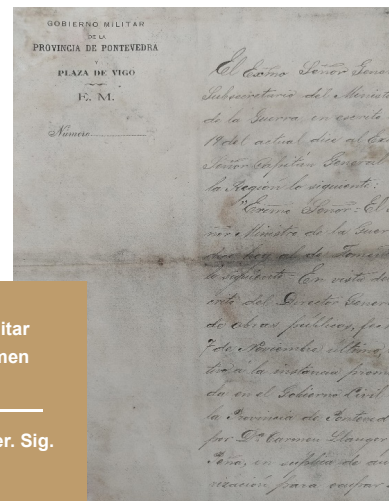 GOBIERNO MILITAR
DE LA
PROVINCIA DE PONTEVEDRA
Y
PLAZA DE VIGO
E. M.
Número
El Exmo Señor General
Subsecretario del Minist
de la Guerra, en escrito
19 del actual dice al
Señor Capitan General
la Región lo siguiente:
"Excmo Señor = El
ñor Ministro de la Guer
hoy al de Fomen
lo siguiente = En vista del
del Director General
de obras públicas, fe
7 de Noviembre último
á la instancia promo
da en el Gobierno Civil
la Provincia de Pontevedr
por Dª Carmen
Peña, en súplica de au
rización para ocupar
itar
men
er. Sig.